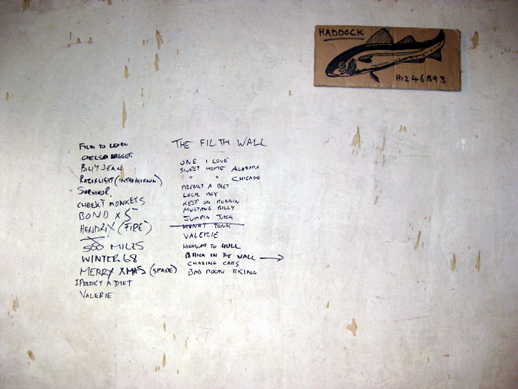 HADDOCK
H1246893
FILTH TO LEARN
CHELSEA DAGGER
BILLY JEAN
RAZORLIGHT (INTHEMORNING)
SURVIVOR
CHEEKY MONKEYS
BOND X 5
HENDRIX (FIRE)
500 MILES
WINTER 68
MERRY XMAS (SPADE)
I PREDICT A DIET
VALERIE
THE FILTH WALL
ONE I LOVE
SWEET HOME ALABAMA
" " CHICAGO
PREDICT A DIET
LOCAL BOY
KEEP ON RUNNIN
MUSTANG BILLY
JUMPIN JACK
HONKY TONK
VALERIE
HIGHWAY TO HULL
BRICK IN THE WALL →
CHASING CARS
BAD MOON RISING